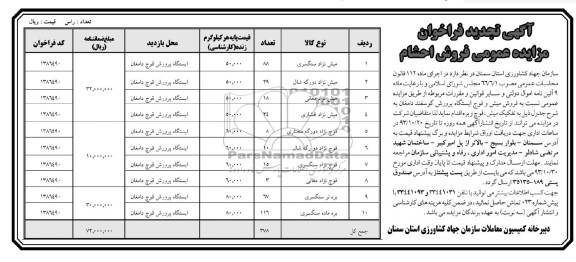 تعداد : راس    قیمت : ریال
آگهی تجدید فراخوان
مزایده عمومی فروش احشام
سازمان جهاد کشاورزی استان سمنان در نظر دارد در اجرای ماده ۱۱۲ قانون
محاسبات عمومی مصوب ۶۶/۶/۱ مجلس شورای اسلامی و با رعایت ماده
۹ آئین نامه اموال دولتی و سایر قوانین و مقررات مربوطه از طریق مزایده
عمومی نسبت به فروش میش و قوچ ایستگاه پرورش گوسفند دامغان به
شرح جدول ذیل به تفکیک میش، قوچ و بره اقدام نماید لذا متقاضیان شرکت
در مزایده می توانند از تاریخ انتشار آگهی همه روزه تا تاریخ ۹۳/۱۰/۲۰ در
ساعات اداری جهت دریافت اوراق شرایط مزایده و برگ پیشنهاد قیمت به
آدرس سمنان - بلوار بسیج - بالاتر از پل امیرکبیر - ساختمان شهید
مرتضی شادلو - مدیریت امور اداری، رفاه و پشتیبانی سازمان مراجعه
نمایند. مهلت ارسال مدارک و پیشنهاد قیمت تا پایان وقت اداری مورخ
۹۳/۱۰/۳۰ می باشد که می بایست از طریق پست پیشتاز به آدرس صندوق
پستی ۱۸۹-۳۵۱۳۵ ارسال گردد.
جهت کسب اطلاعات بیشتر می توانید با تلفن ۳۳۴۴۱۰۳۱ و ۳۳۴۴۱۰۹۳ با
پیش شماره ۰۲۳ تماس حاصل نمائید، در ضمن کلیه هزینه های کارشناسی
و انتشار آگهی (سه نوبت) به عهده برندگان مزایده می باشد.
دبیرخانه کمیسیون معاملات سازمان جهاد کشاورزی استان سمنان
ردیف    نوع کالا    تعداد    قیمت پایه هر کیلوگرم زنده (کارشناسی)    محل بازدید    مبلغ ضمانتنامه (ریال)    کد فراخوان
۱    میش نژاد سنگسری    ۸۸    ۵۰,۰۰۰    ایستگاه پرورش قوچ دامغان    ۱۳۸۶۴۹۰
۲    میش نژاد دورگه شال    ۲۹    ۵۰,۰۰۰    ایستگاه پرورش قوچ دامغان    ۱۳۸۶۴۹۰
۳    ۱۸    ۵۰,۰۰۰    ایستگاه پرورش قوچ دامغان    ۳۲,۰۰۰,۰۰۰    ۱۳۸۶۴۹۰
۴    میش نژاد افشاری    ۲۴    ۵۰,۰۰۰    ایستگاه پرورش قوچ دامغان    ۱۳۸۶۴۹۰
۵    قوچ نژاد دورگه افشاری    ایستگاه پرورش قوچ دامغان    ۱۳۸۶۴۹۰
۶    قوچ نژاد دورگه شال    ۱۰    ایستگاه پرورش قوچ دامغان    ۱۰,۰۰۰,۰۰۰    ۱۳۸۶۴۹۰
۷    قوچ نژاد سنگسری    ۱۵    ۶۰,۰۰۰    ایستگاه پرورش قوچ دامغان    ۱۳۸۶۴۹۰
۸    قوچ نژاد مغانی    ۳    ۶۰,۰۰۰    ایستگاه پرورش قوچ دامغان    ۱۳۸۶۴۹۰
۹    بره نر سنگسری    ۶۷    ۸۰,۰۰۰    ایستگاه پرورش قوچ دامغان    ۳۰,۰۰۰,۰۰۰    ۱۳۸۶۴۹۰
۱۰    بره ماده سنگسری    ۱۱۶    ۸۰,۰۰۰    ایستگاه پرورش قوچ دامغان    ۱۳۸۶۴۹۰
جمع کل    ۳۷۸    ۷۲,۰۰۰,۰۰۰
ParsNamadData